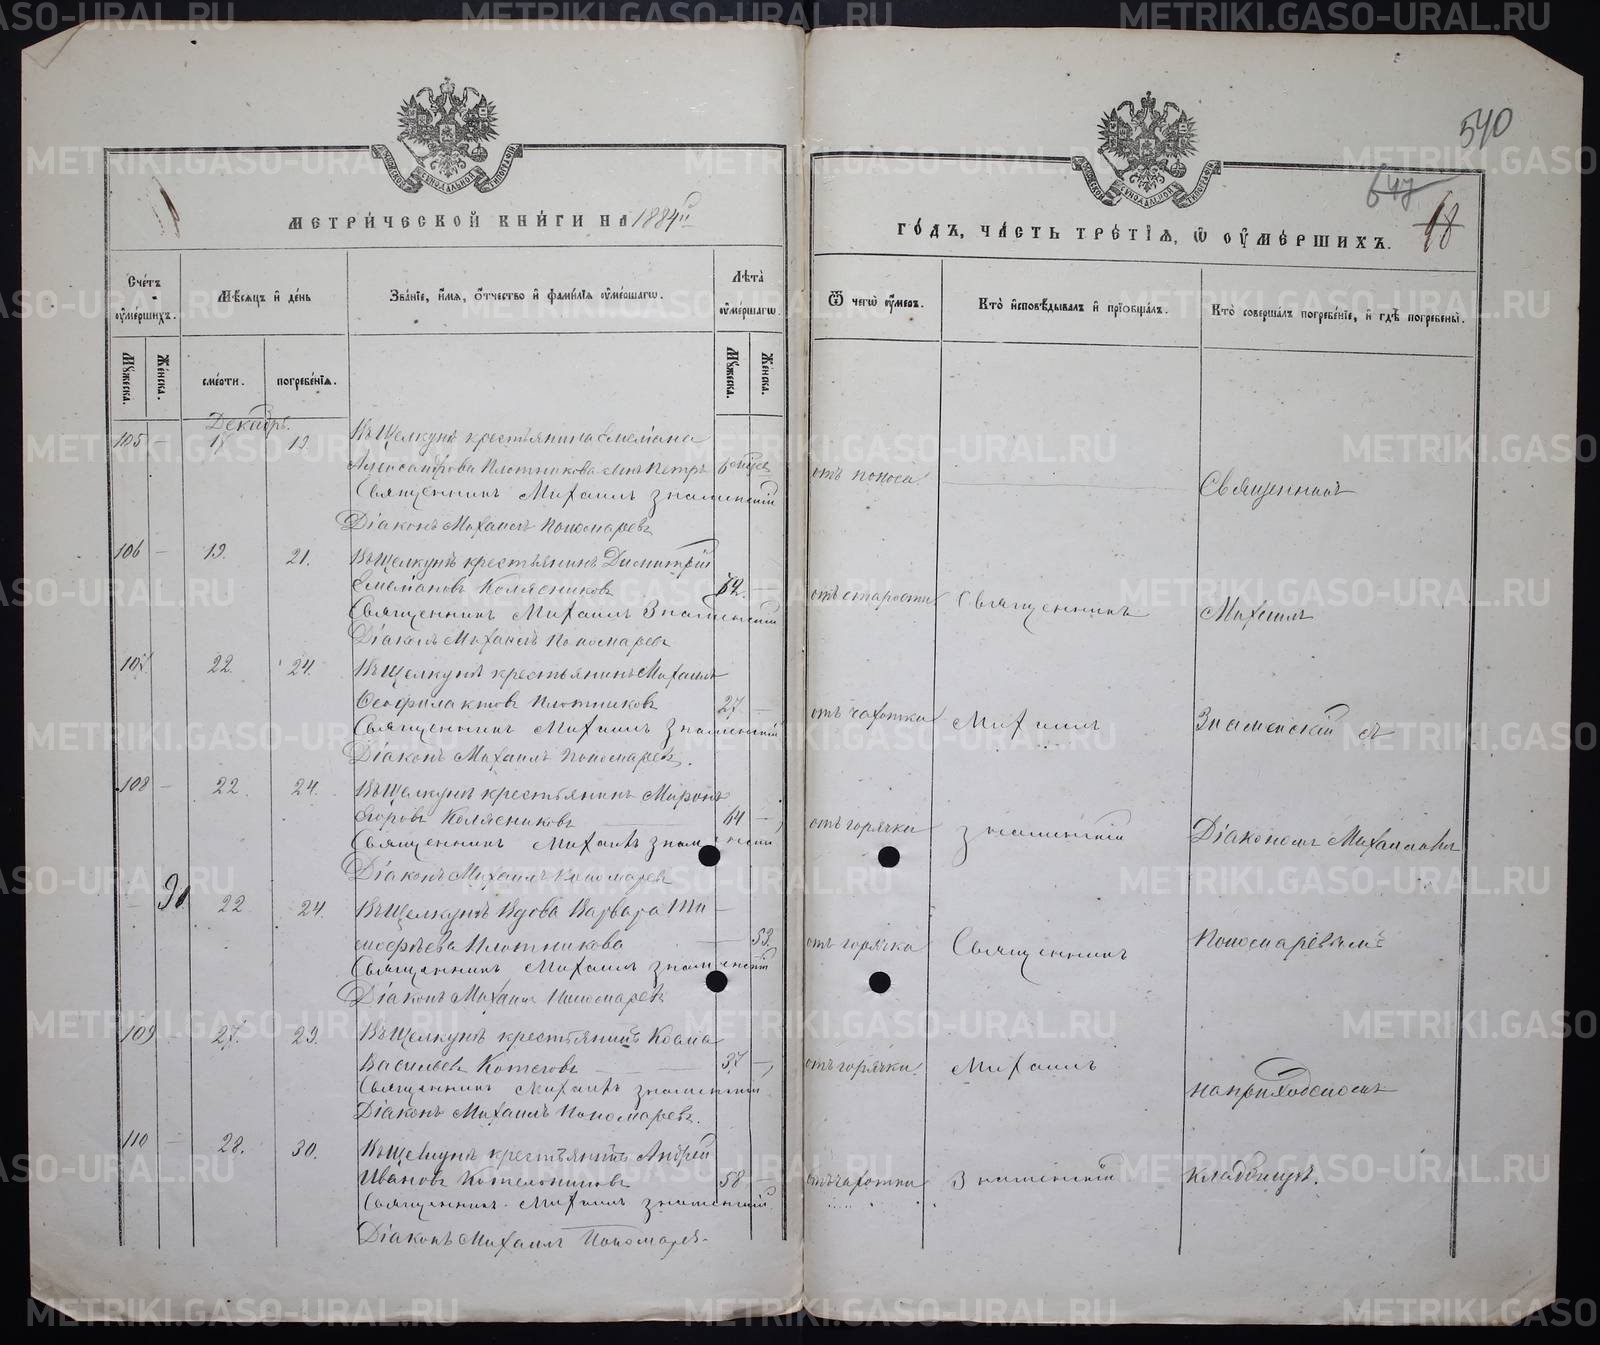 540
647
48
МЕТРИЧЕСКОЙ КНИГИ НА 1884й
ГОДЪ, ЧАСТЬ ТРЕТІЯ, Ѿ ОУМЕРШИХЪ.
Счетъ оумершихъ.
Мѣсяцъ и день
Званіе, имя, отчество и фамилія оумершагѡ.
Лѣта оумершагѡ.
Ѿ чегѡ оумеръ.
Кто исповѣдывалъ и пріобщалъ.
Кто совершалъ погребеніе, и гдѣ погребены.
Мужеска.
Женска.
смерти.
погребенія.
Мужеска.
Женска.
Декабрь.
105 – 17 19 Въ Щелкунѣ крестьянина Емеліана
Александрова Плотникова сынъ Петръ 6 мцев
отъ поноса
Священникъ
Священникъ Михаилъ Знаменскій
Діаконъ Михаилъ Пономаревъ
106 – 19. 21. Въ Щелкунѣ крестьянинъ Димитрій
Емеліановъ Колясниковъ 72. –
отъ старости Священникъ Михаилъ
Священникъ Михаилъ Знаменскій
Діаконъ Михаилъ Пономаревъ
107 – 22. 24. Въ Щелкунѣ крестьянинъ Михаилъ
Ѳеофилактовъ Плотниковъ 27 –
отъ чахотки Михаилъ Знаменскій съ
Священникъ Михаилъ Знаменскій
Діаконъ Михаилъ Пономаревъ.
108 – 22. 24. Въ Щелкунѣ крестьянинъ Миронъ
Егоровъ Колясниковъ 64 –
отъ горячки Знаменскій Діакономъ Михаиломъ
Священникъ Михаилъ Знаменскій
Діаконъ Михаилъ Пономаревъ
– 91 22 24. Въ Щелкунѣ Вдова Варвара Ти-
моѳѣева Плотникова – 53.
отъ горячки Священникъ Пономаревымъ
Священникъ Михаилъ Знаменскій
Діаконъ Михаилъ Пономаревъ
109 – 27. 29. Въ Щелкунѣ крестьянинъ Косма
Васильевъ Котеговъ 37 –
отъ горячки. Михаилъ на приходскомъ
Священникъ Михаилъ Знаменскій
Діаконъ Михаилъ Пономаревъ.
110 – 28. 30. Въ Щелкунѣ крестьянинъ Андрей
Ивановъ Котельниковъ 58 –
отъ чахотки Знаменскій Кладбищѣ.
Священникъ Михаилъ Знаменскій
Діаконъ Михаилъ Пономаревъ
METRIKI.GASO-URAL.RU